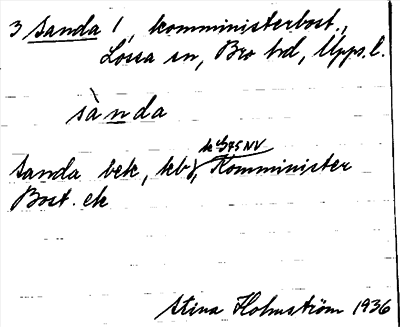 3 Sanda 1, komministerbost.,
Lossa sn, Bro hd, Upps. l.
sànda
Sanda bek, kb, Komminister
Bost. ek
Stina Holmström 1936